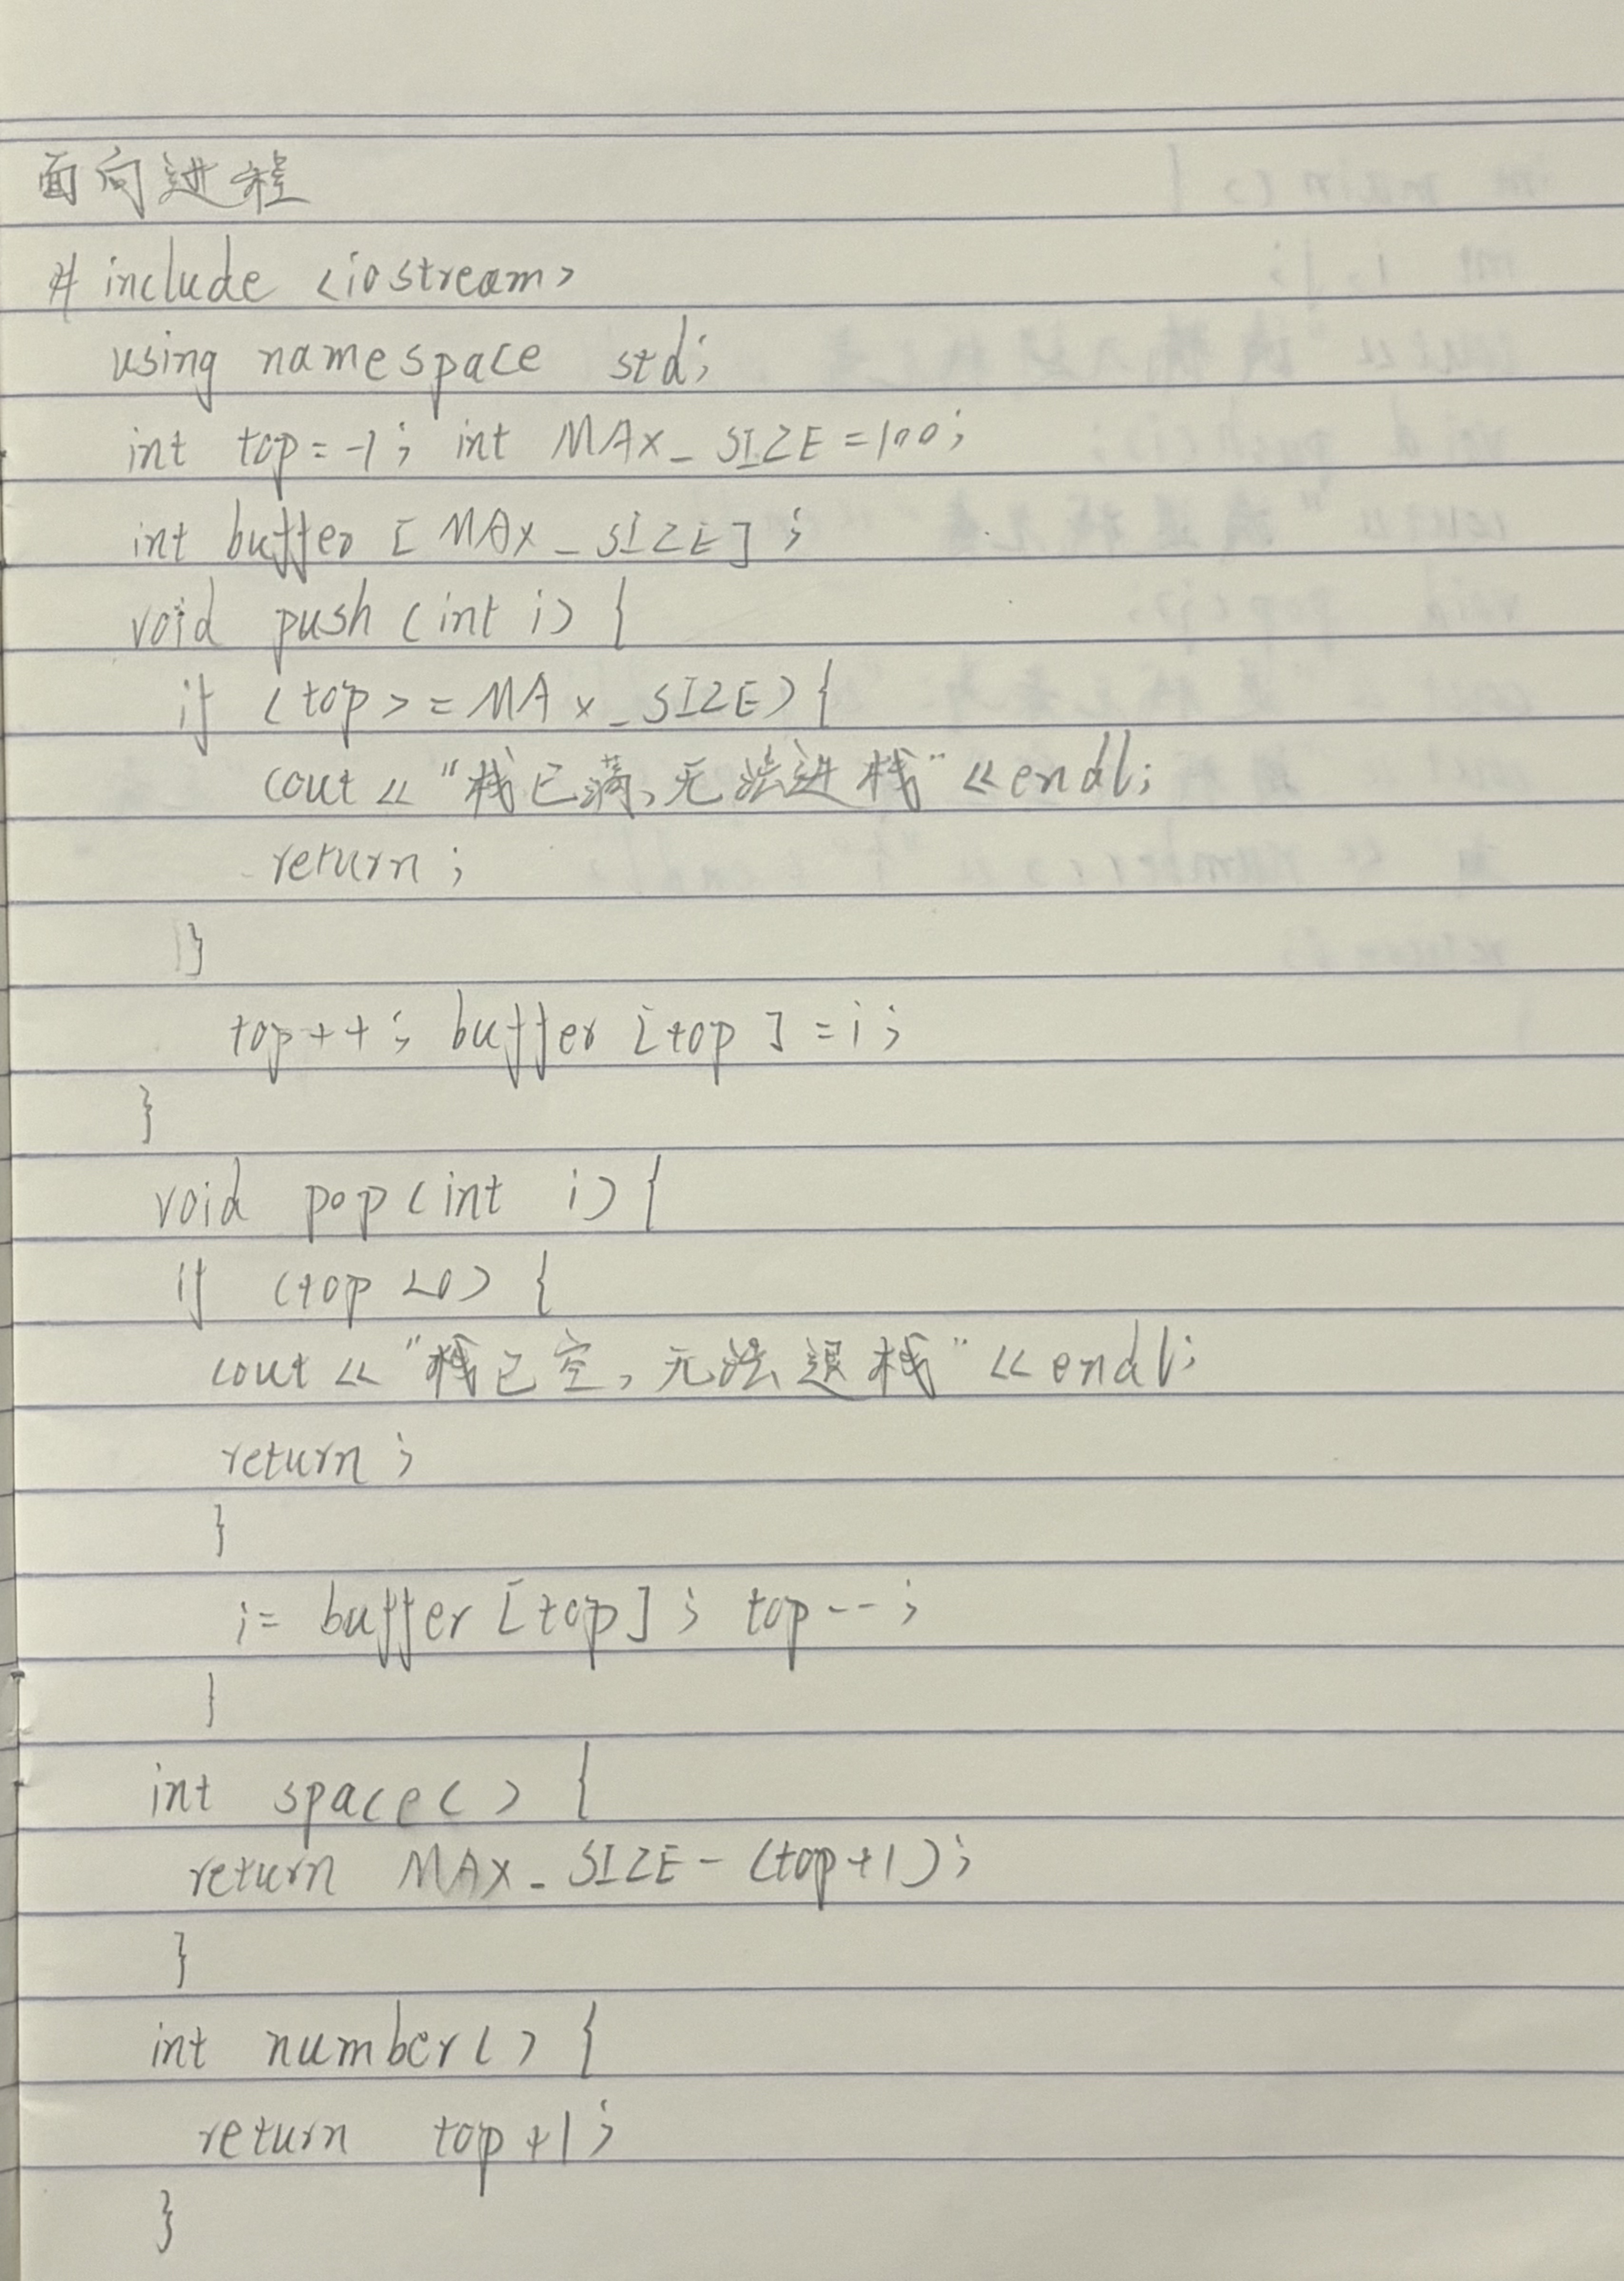 面向进程
# include <iostream>
using namespace std;
int top=-1; int MAX_SIZE=100;
int buffer [MAX_SIZE];
void push (int i) {
if (top>=MAX_SIZE){
cout << "栈已满,无法进栈" <<endl;
return;
}
top++; buffer [top]=i;
}
void pop(int i){
if (top <0) {
cout << "栈已空,无法退栈" <<endl;
return;
}
i= buffer [top]; top--;
}
int space() {
return MAX_SIZE-(top+1);
}
int number() {
return top+1;
}